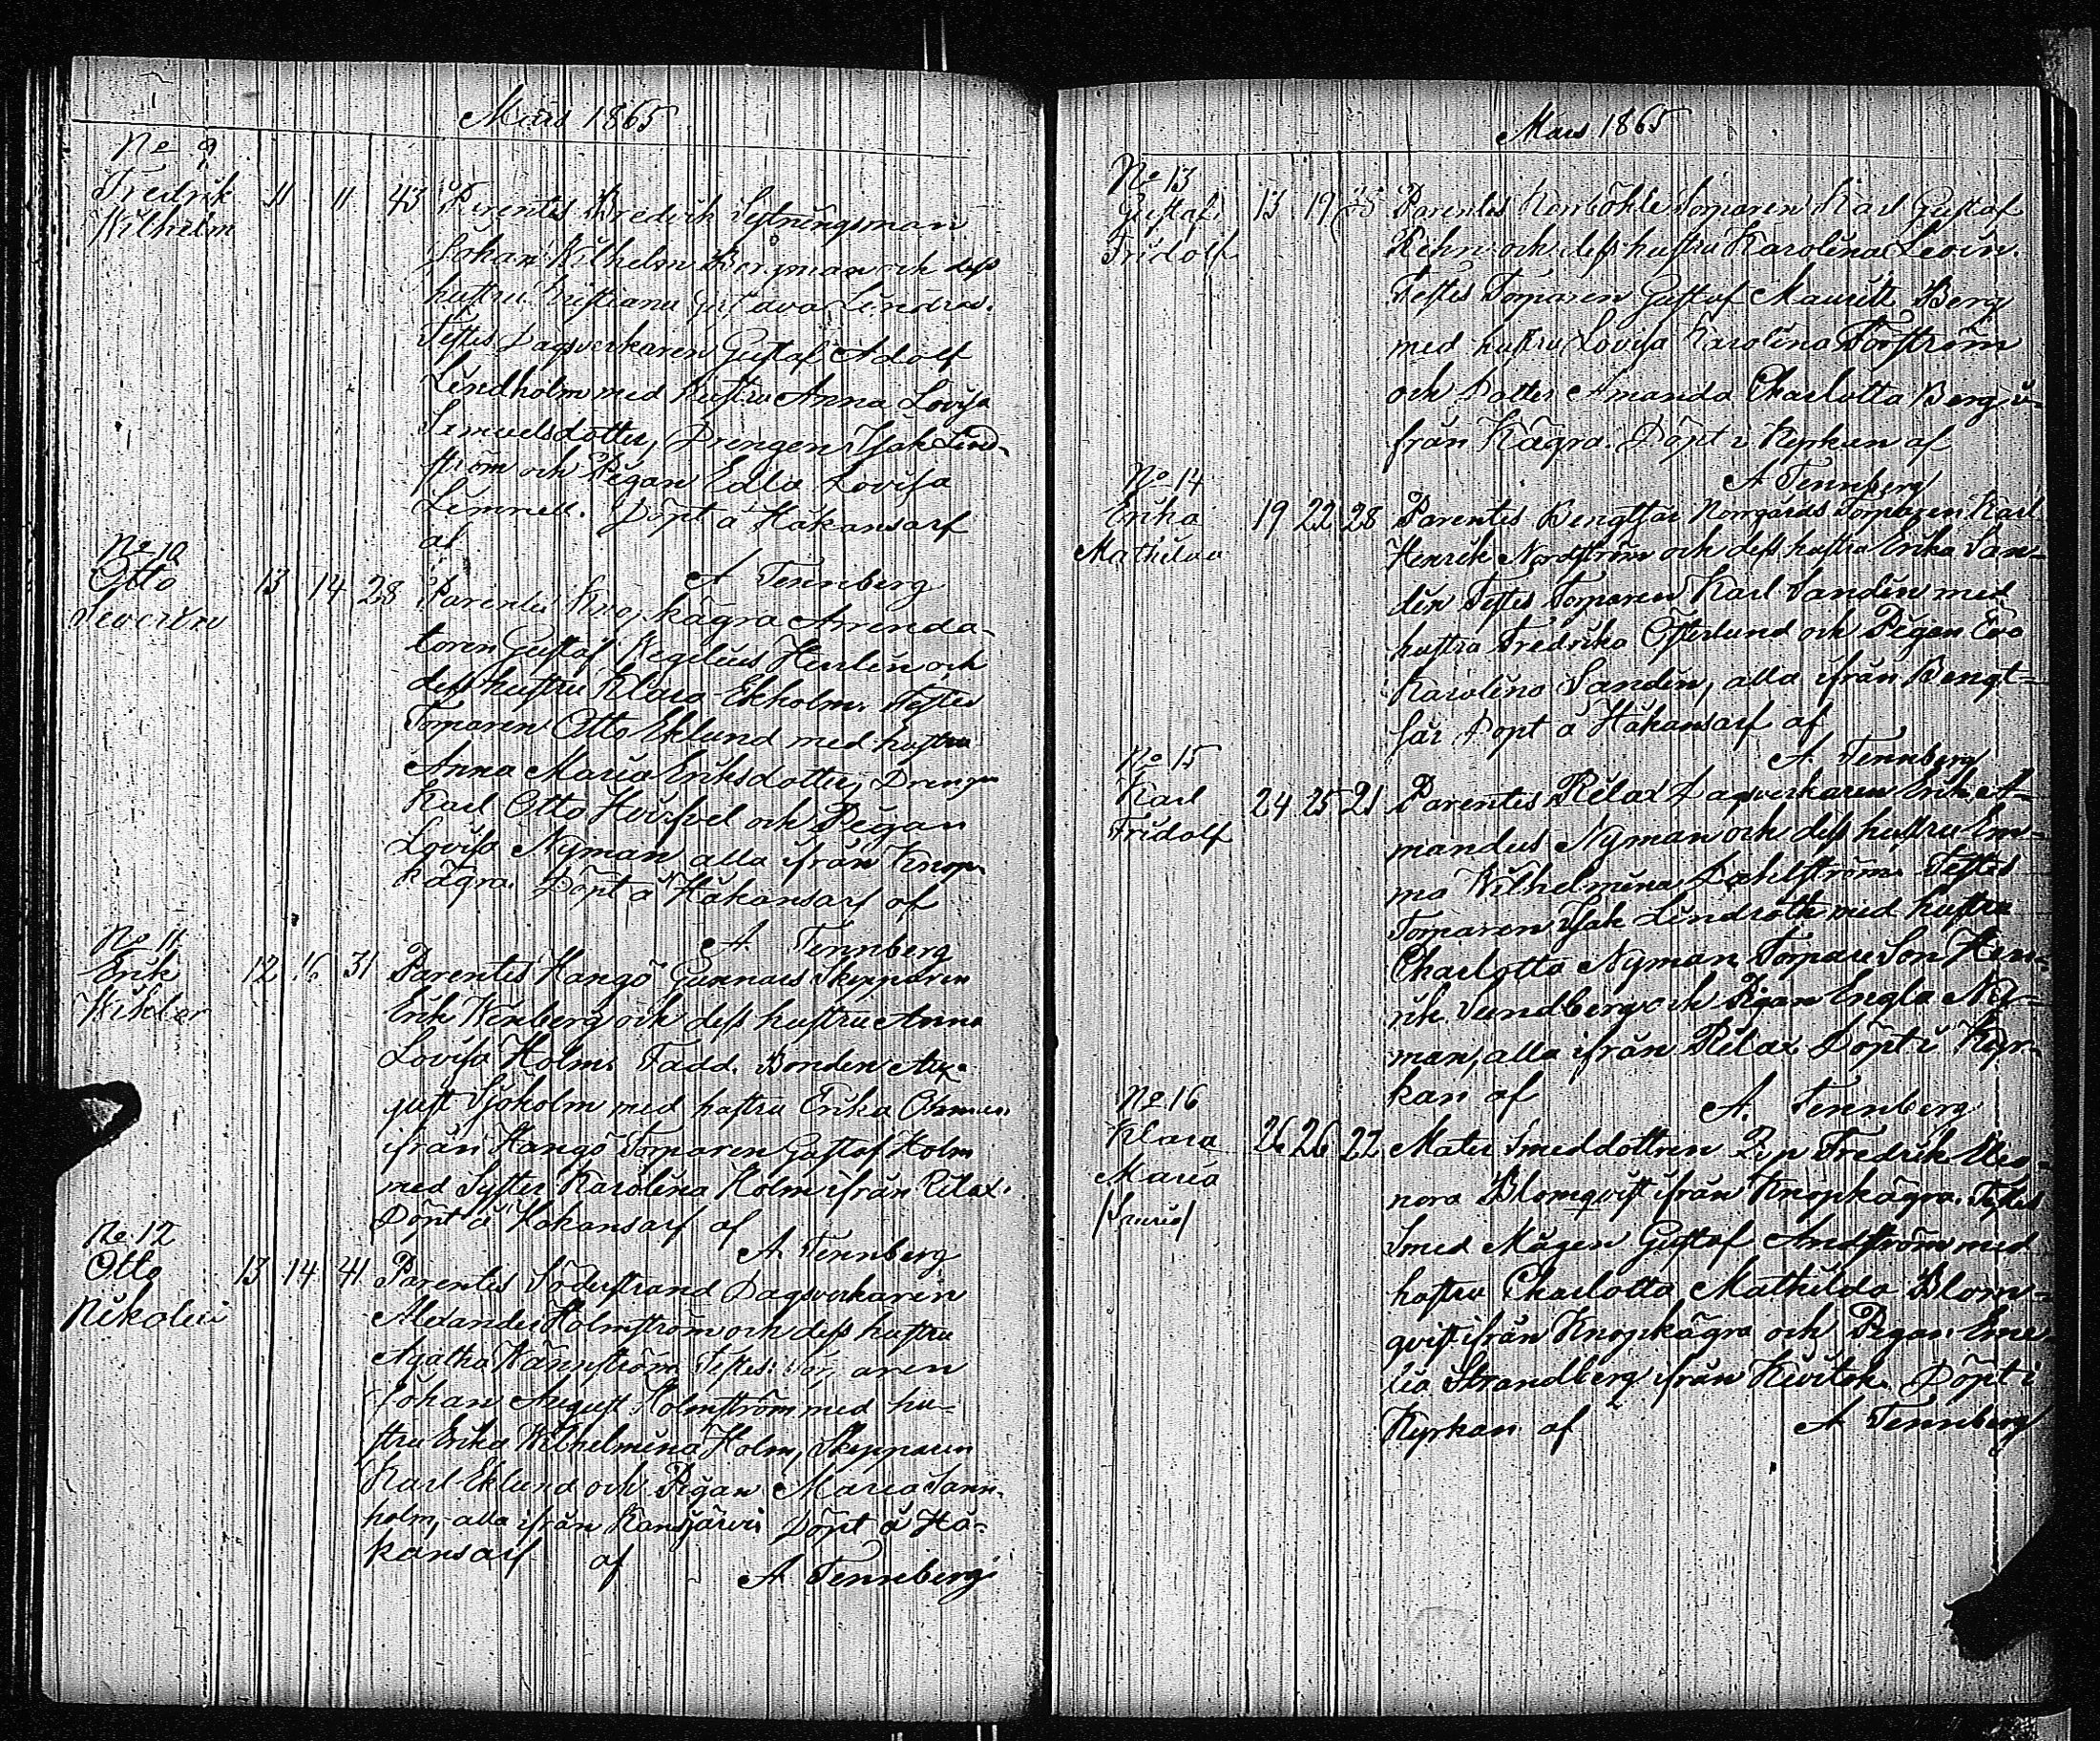 Mars 1865
No 9
Fredrik 11 11 43 Parentes Bredvik Sytningsman
Wilhelm
Johan Wilhelm Bergman och dess
hustru Kristiana Gustava Lindros.
Testes Dagsverkaren Gustaf Adolf
Lindholm med hustru Anna Lovisa
Samuelsdotter, Drengen Isak Lind-
ström och Pigan Edla Lovisa
Limnell. Döpt å Håkansarf
af
A Tennberg
No 10
Otto 13 14 28 Parentes Knopkägra Arrenda-
Severin
toren Gustaf Wegelius Henlin och
dess hustru Klara Ekholm. Testes
Torparen Otto Eklund med hustru
Anna Maria Eriksdotter, Drengen
Karl Otto och Pigan
Lovisa Nyman alla ifrån Knop-
kägra. Döpt å Håkansarf af
A. Tennberg
No 11
Erik 12 16 31 Parentes Hangö Gunnars Skepparen
Wiktor
Erik Wenberg och dess hustru Anna
Lovisa Holm. Fadd. Bonden Au-
gust Sjöholm med hustru Erika
ifrån Hangö Torparen Gustaf Holm
med Syster Karolina Holm ifrån Rilax.
Döpt å Håkansarf af
A. Tennberg
No 12
Otto 13 14 41 Parentes Söderstrand Dagsverkaren
Nikolai
Alexander Holmström och dess hustru
Agatha Wännström. Testes: Torparen
Johan August Holmström med hu-
stru Erika Wilhelmina Holm, Skepparen
Karl Eklund och Pigan Maria Sann-
holm, alla ifrån Kansjärvi Döpt å Hå-
kansarf af
A Tennberg
Mars 1865
No 13
Gustaf 13 19 35 Parentes Norrböhle Torparen Karl Gustaf
Fridolf
Rehn och dess hustru Karolina Levin.
Testes Torparen Gustaf Mauritz Berg
med hustru Lovisa Karolina Forström
och Dotter Amanda Charlotta Berg i-
från Kägra. Döpt i Kyrkan af
A Tennberg
No 14
Erika 19 22 28 Parentes Bengtsår Norrgårds Torparen Karl
Mathilda
Henrik Nordström och dess hustru Erika San-
din Testes Torparen Karl Sandin med
hustru Fredrika Österlund och Pigan Eva
Karolina Sandin, alla ifrån Bengt-
sår Döpt å Håkansarf af
A. Tennberg
No 15
Karl 24 25 21 Parentes Rilax Dagsverkaren Erik A-
Fridolf
mandus Nyman och dess hustru Em-
ma Wilhelmina Dahlström. Testes
Torparen Isak Lindroth med hustru
Charlotta Nyman, Torpare Son Hen-
rik Sundberg och Pigan Engla Ny-
man, alla ifrån Rilax Döpt i Kyr-
kan af
A. Tennberg
No 16
Klara 26 26 22 Mater Smeddottren Fredrik Eleo-
Maria
nora Blomqvist ifrån Knopkägra. Testes
/Spuria/
Smed Mågen Gustaf Amdström med
hustru Charlotta Mathilda Blom-
qvist ifrån Knopkägra och Pigan Eme-
lia Strandberg ifrån Kivitok. Döpt i
Kyrkan af A Tennberg